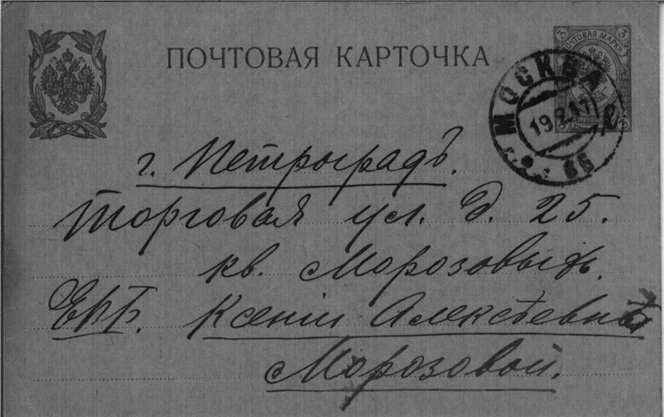 ПОЧТОВАЯ КАРТОЧКА
ПОЧТОВАЯ МАРКА
МОСКВА
19.2.17
г. Петроградъ.
Торговая ул. д. 25.
кв. Морозовыхъ.
ЕВБ. Ксеніи Алексѣевнѣ
Морозовой.